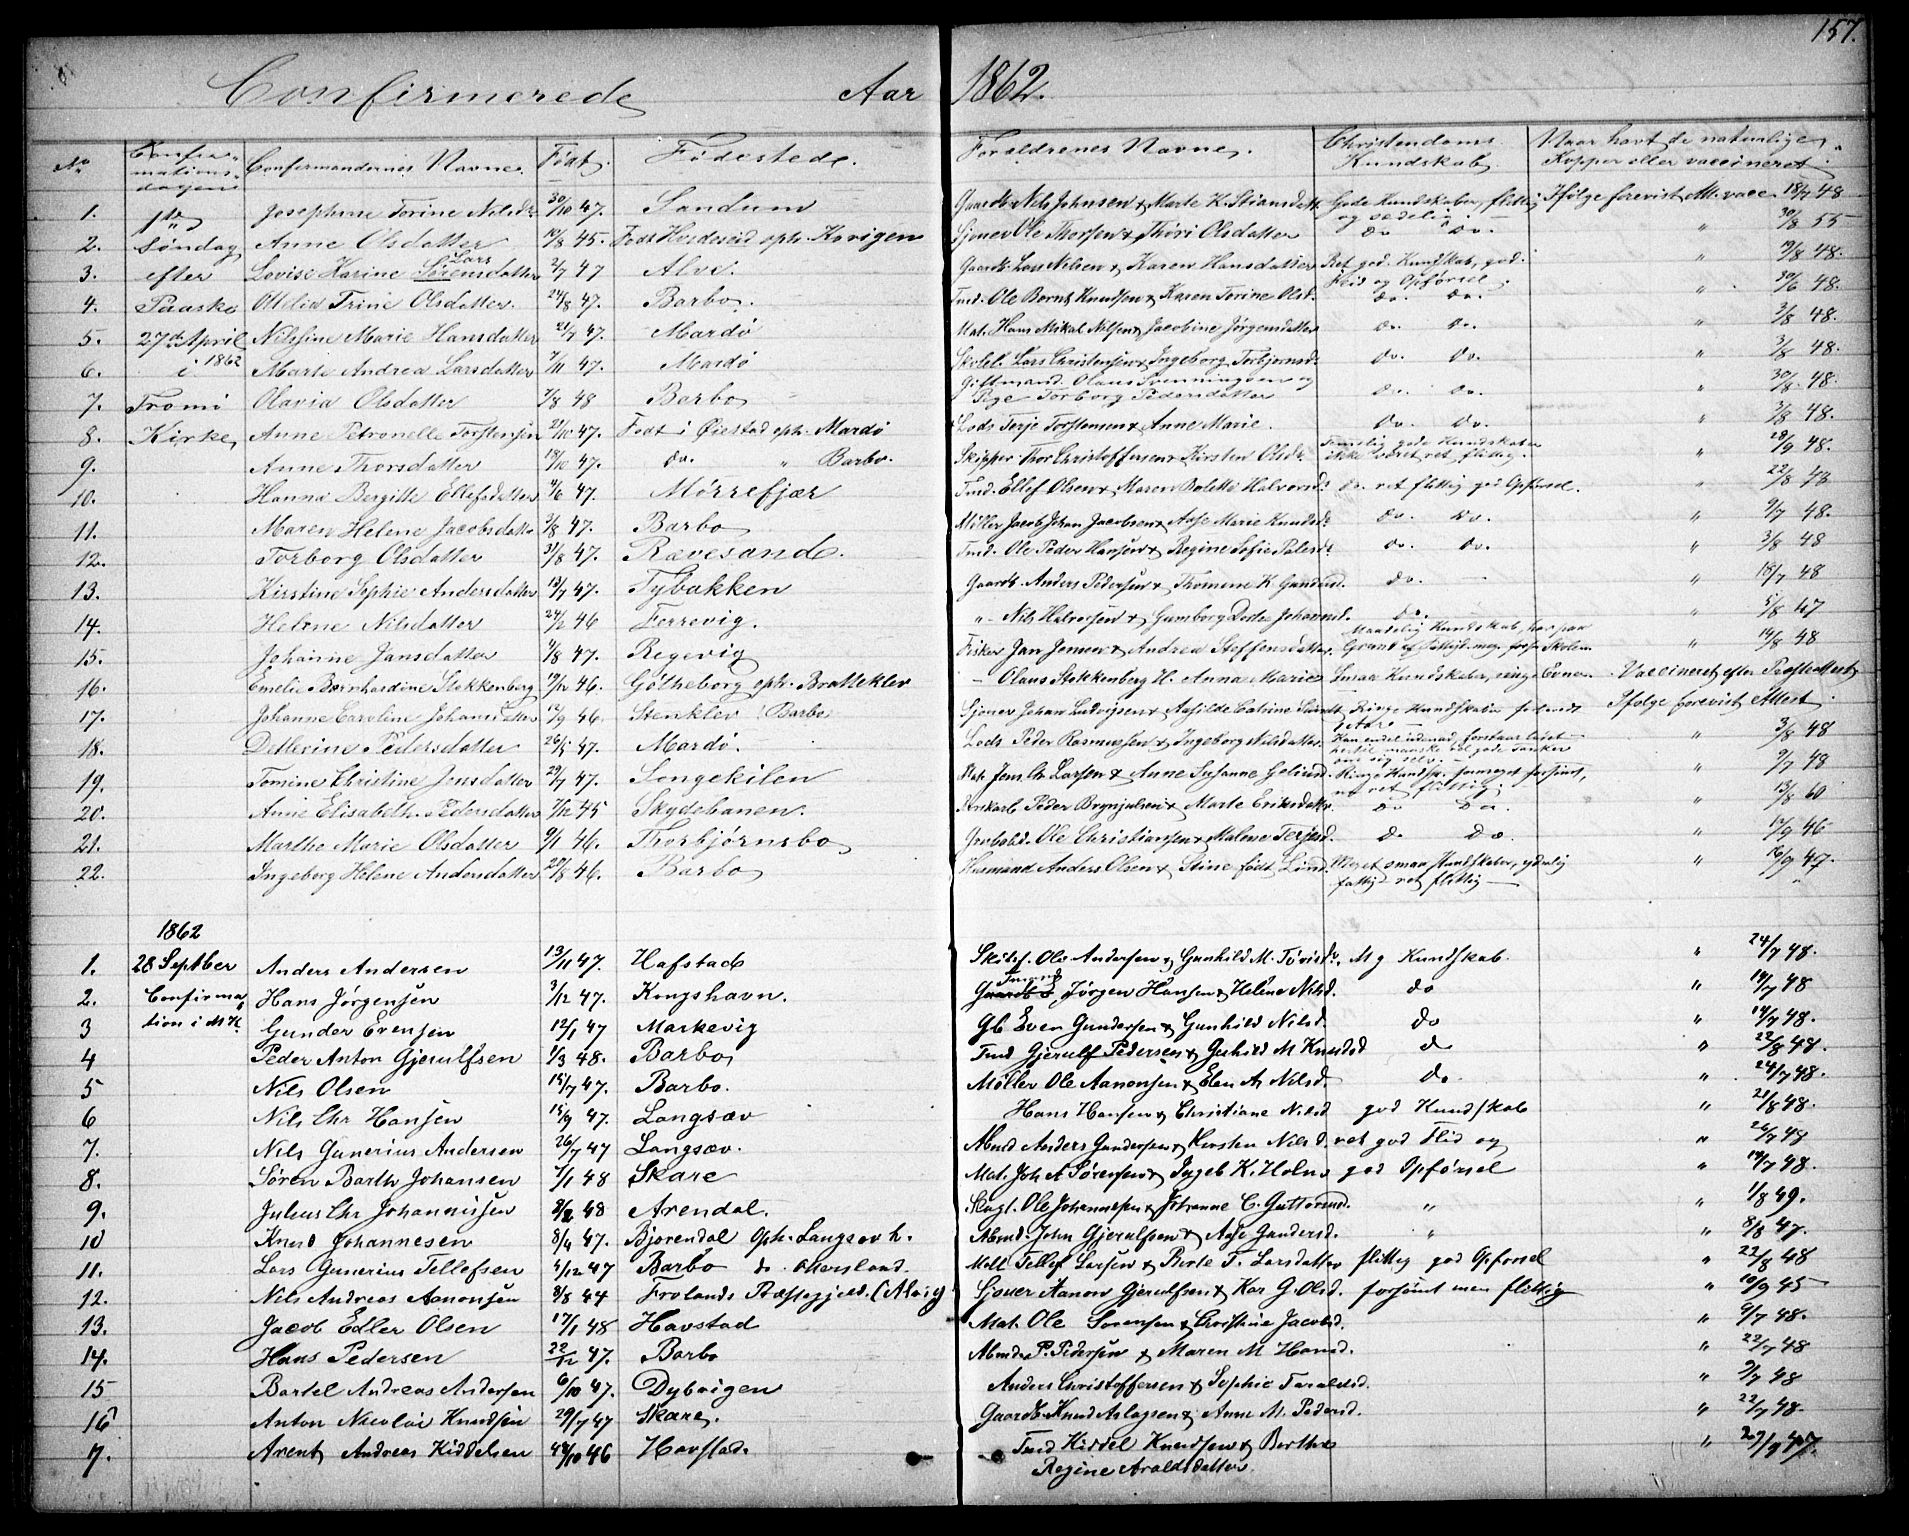 157.
Confirmerede Aar 1862.
No Confirmationsdagen Confirmandernes Navne. Født. Fødested. Forældrenes Navne. Christendoms Kundskab Naar havt de naturlige Kopper eller vaccineret
1. 1ste Josephine Torine Nilsd. 30/10 47. Sandum Gaardb. Nils Johnsen & Marte K. Stiansdatt. Gode Kundskaber, flittig og sædelig. Ifølge forevist Att. vacc. 18/7 48
2. Søndag Anne Olsdatter 10/8 45. Født Hvideseid oph. Kovigen Sjøuer Ole Thorsen & Thöri Olsdatter do. do. " 30/8 55
3. efter Lovise Karine Sörensdatter Lars 2/7 47 Alve. Gaardb. Lars Nilsen & Karen Hansdatter Ret god Kundskab, god Flid og Opførsel. " 19/8 48.
4. Paaske Ottilia Trine Olsdatter. 24/8 47. Barbo. Tmd. Ole Bernt Knudsen & Karen Torine Olsd. do. do. " 30/6 48.
5. 27de April Nilsine Marie Hansdatter 21/7 47. Mardö Mat. Hans Mikal Nilsen & Jacobine Jørgensdatter do. do. " 3/8 48.
6. i 1862 Marte Andrea Larsdatter 7/11 47. Mardö Skolel. Lars Christensen & Ingeborg Torbjornsd. do. do. " 3/8 48.
7. Tromö Olavia Olsdatter 7/8 48 Barbo Giftmand. Olaus Svenningsen og Pige Torborg Pedersdatter do. do. " 30/8 48.
8. Kirke Anne Petronelle Torstensen 22/10 47. Födt i Øiestad oph. Mardö Lods Terje Torstensen & Anne Marie. do. do. " 3/8 48.
9. Anne Thorsdatter 18/10 47. do. " Barbo. Skipper Thor Christoffersen & Kirsten Olsd. Temelig gode Kundskaber ikke været ret flittig. " 28/9 48.
10. Hanna Bergitte Ellefsdatter 4/6 47. Mörrefjær Tmd. Ellef Olsen & Maren Bolette Halvorsd. do. ret flittig god Opførsel. " 22/8 48
11. Maren Helene Jacobsdatter 3/8 47. Barbo Möller Jacob Johan Jacobsen & Aase Marie Knudsd. do. do. " 9/7 48.
12. Torborg Olsdatter 31/8 47. Rævesand. Tmd. Ole Peder Hansen & Regine Sofie Palesd. do. do. " 3/8 48
13. Kirstine Sophie Andersdatter 13/7 47. Tybakken Gaardb. Anders Pedersen & Thomine K. Gundersd. do. " 18/7 48
14. Helene Nilsdatter 24/2 46 Færrevig. " Nils Halvorsen & Gumborg Johannd. do. " 5/8 47
15. Johanne Jansdatter 4/8 47. Regevig Fisker Jan Jensen & Andrea Steffensdatter. Maadelig Kundskab, Skolen " 14/8 48
16. Emelie Bernhardine Stokkenberg 19/12 46. Götheborg oph. Bratteklev Olaus Stokkenberg H. Anna Marie Smaa Kundskaber, ringe Evner. Vaccineret efter Præstattest
17. Johanne Caroline Johansdatter 12/9 46. Stenklev (Barbo Sjöuer Johan Ludvigsen & Aasilde Catrine Ringe Kundskaber Ifølge forevist Attest.
18. Ditlerine Pedersdatter 26/5 47. Mardö. Lods Peder Rasmussen & Ingeborg Nilsdatter. Kan endel udenad, forstaar lidet " 3/8 48
19. Tomine Christine Jensdatter 29/7 47. Songekilen Mat. Jens Chr. Larsen & Anne Susanne Gelund. Ringe Kundsk. ret flittig. " 9/7 48
20. Anne Elisabeth Pedersdatter 7/12 45 Skydebanen. Peder Brynjulsen & Marte Eriksdatter do do " 13/8 60
21. Marthe Marie Olsdatter 9/1 46. Thorbjörnsbo Ole Christiansen & Malene Terjesd. do do " 17/9 46
22. Ingeborg Helene Andersdatter 22/8 46. Barbo Husmand Anders Olsen & Stine født Lund. Meget smaa Kundskaber, yderlig fattig ret flittig " 16/9 47.
1862
1. 28 Septber Anders Andersen 13/11 47. Hafstad Ole Andersen & Gunhild M. Tovisd. M g Kundskab. " 24/7 48.
2. Confirma Hans Jørgensen 3/12 47. Kongshavn. Gaardb Tmd Jørgen Hansen & Helene Nilsd. do " 19/7 48
3 tion i M K. Gunder Evensen 12/1 47 Markevig Gb Even Gundersen & Gunhild Nilsd. do " 19/7 48.
4 Peder Anton Gjerulfsen 1/3 48. Barbo Tmd Gjerulf Pedersen & Guhild M Knudsd do " 22/8 48.
5 Nils Olsen 15/7 47. Barbo. Møller Ole Aanonsen & Elen A. Nilsd. do. " 24/7 48.
6 Nils Chr Hansen 15/9 47. Langsæv Hans Hansen & Christiane Nilsd god Kundskab " 21/8 48.
7. Nils Gunerius Andersen 26/7 47 Langsæv. Abmd Anders Gundersen & Kirsten Nilsd. ret god Flid og " 26/7 48
8. Sören Barth Johansen 7/1 48 Skare Mat. Joh A Sørensen & Ingeb K. Holm god Opførsel " 19/7 48.
9. Julius Chr Johannisen 3/2 48 Arendal. Ole Johannesen & Johanne C. Guttormsd. " " 1/8 49.
10 Knud Johannesen 8/4 47. Bjorendal Oph. Langsæv h. Abmd. John Gjerulfsen & Aase Gundersd. " " 8/8 47.
11. Lars Gunerius Tellefsen 4/12 47 Barbo do Mersland. Møll Tellef Larsen & Berte T. Larsdatter flittig god Opførsel " 22/8 48
12. Nils Andreas Aanonsen 8/8 44 Frolands Præstegjeld. Sjøuer Aanon Gjerulfsen & Kar G. Olsd. forsømt men flittig " 10/9 45
13. Jacob Edler Olsen 17/1 48 Havstad Mat. Ole Sørensen & Christine Jacobsd. " 9/7 48.
14. Hans Pedersen 22/12 47. Barbo Abmd P. Pedersen & Maren M Hansd. " 22/7 48
15 Bartel Andreas Andersen 6/10 47. Dybvigen Anders Christoffersen & Sophie Taraldsd. " 9/7 48
16 Anton Nicolai Knudsen 29/7 47 Skare. Gaardb. Knud Aslagsen & Anne M. Pedersd. " 22/7 48.
17. Arent Andreas Kiddelsen 44/10 46 Havstad. Tmd Kiddel Knudsen & Berthe Regine Araldsdatter. " 20/9 47.